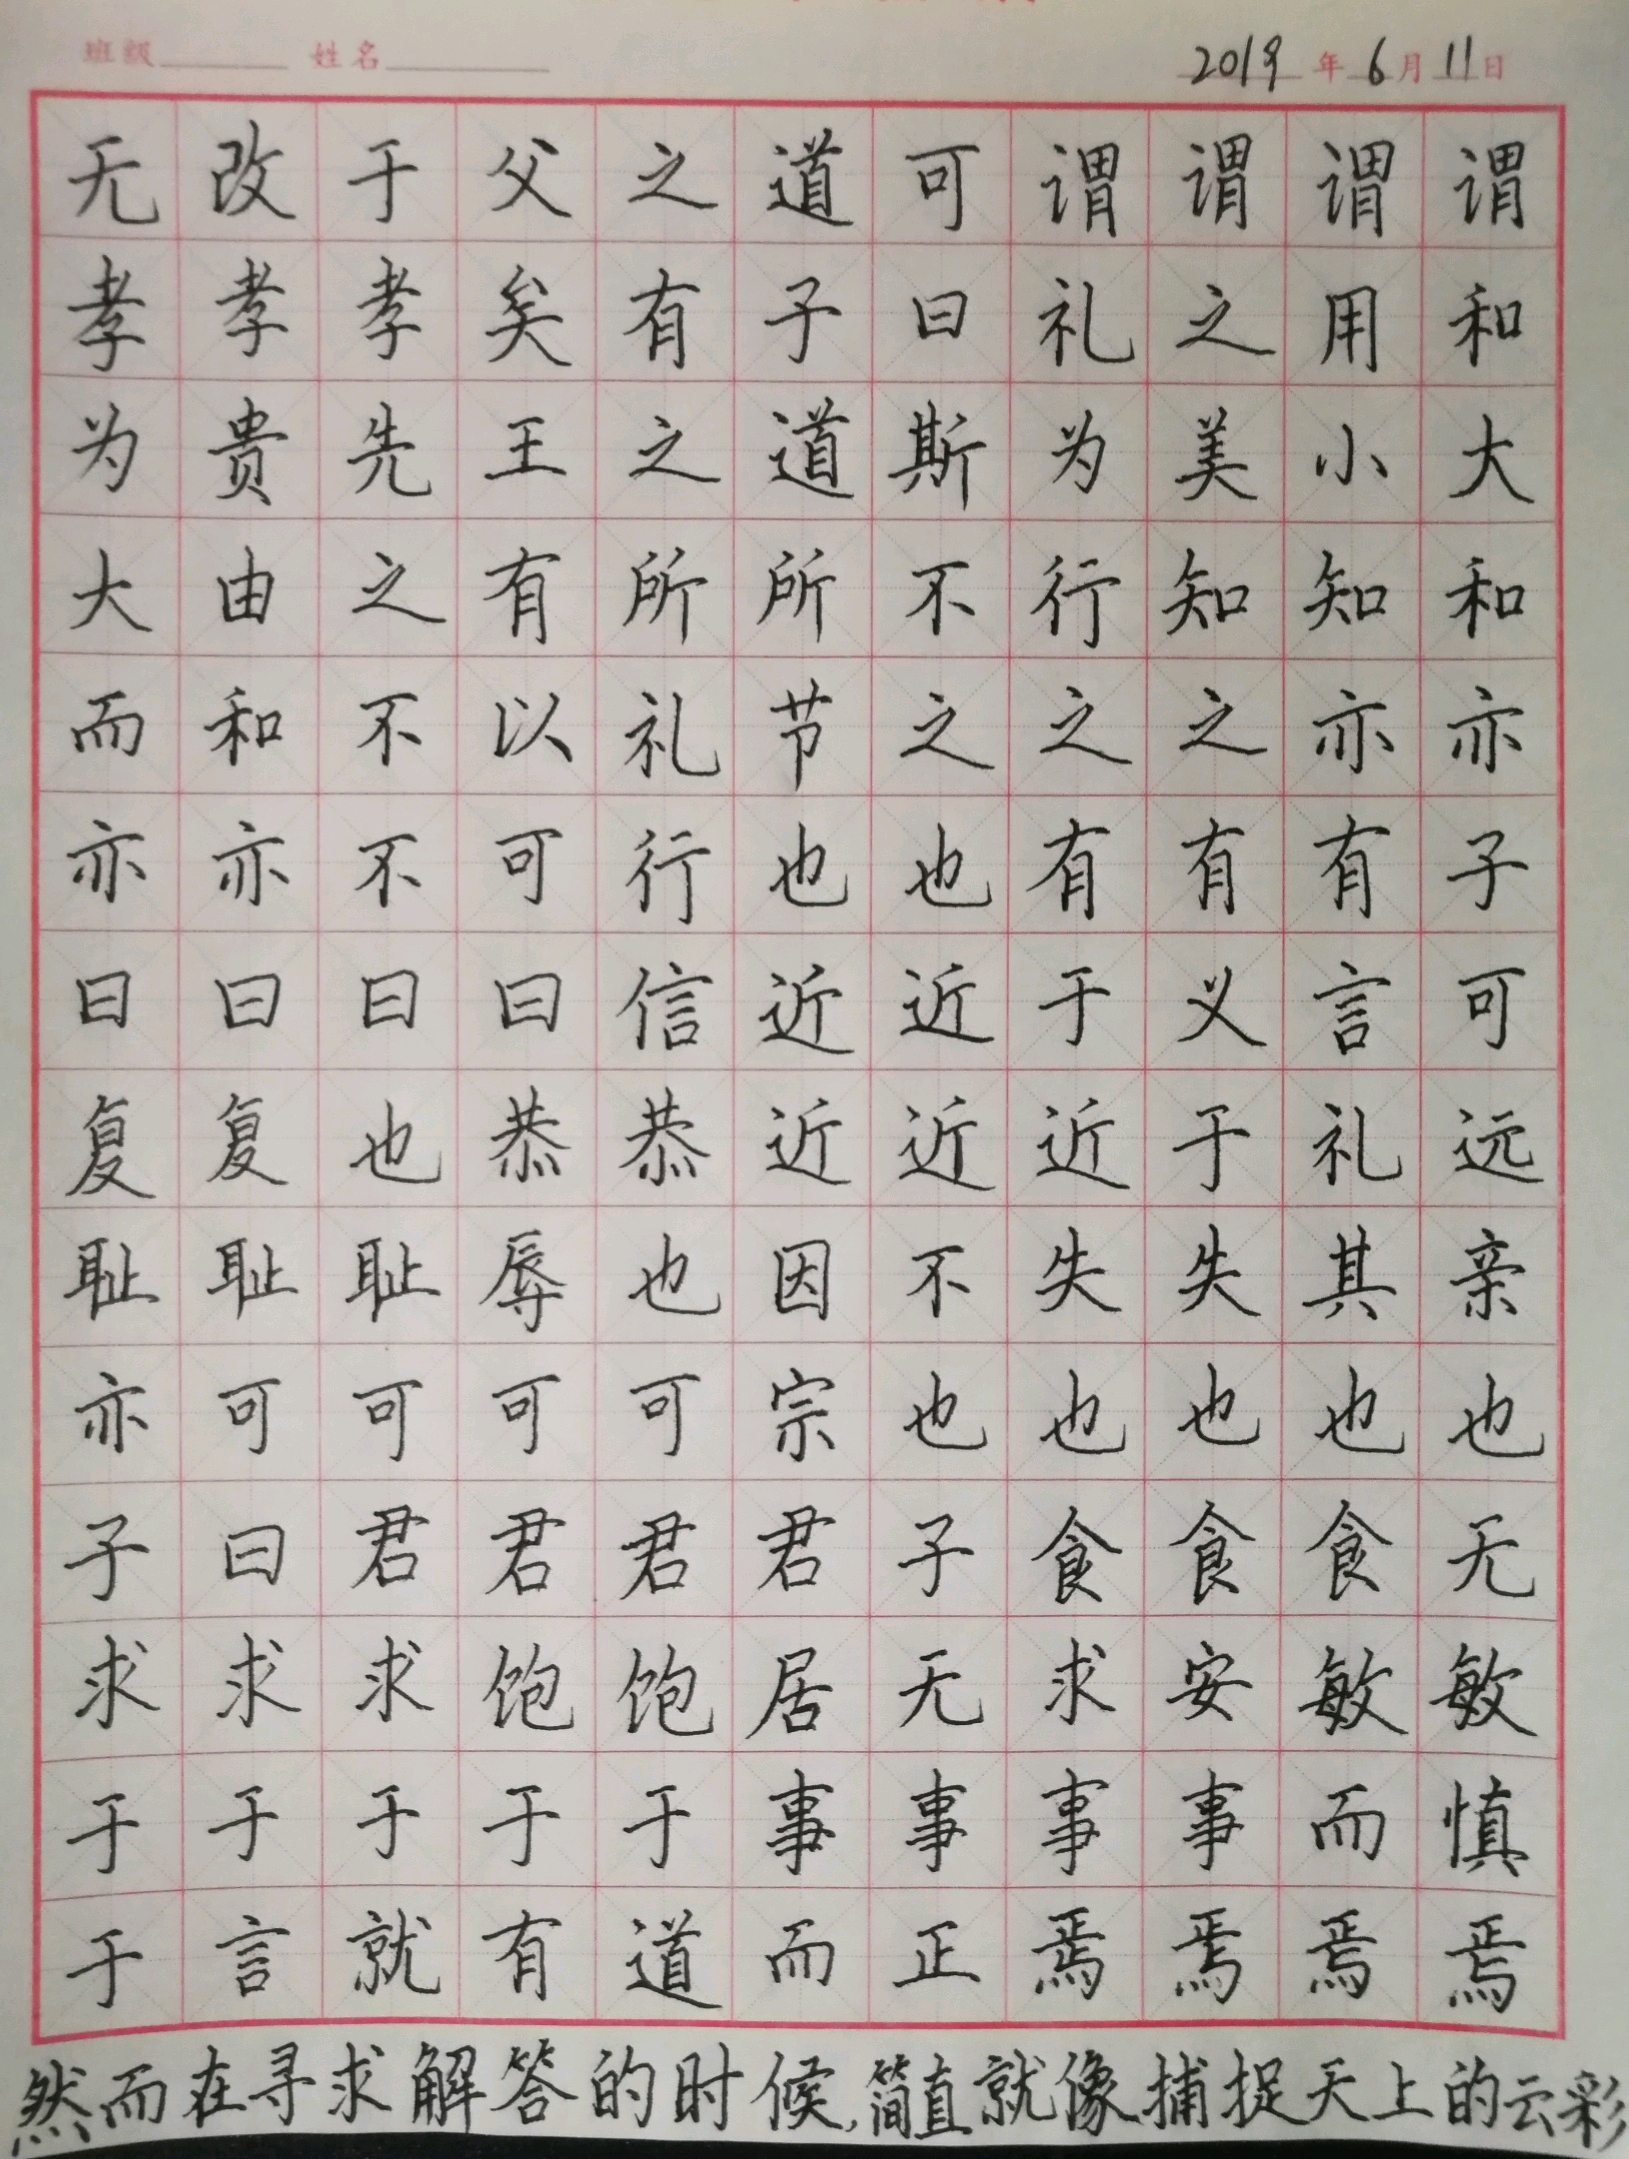 班级 姓名 2019年6月11日
无改于父之道可谓谓谓谓
孝孝孝矣有子曰礼之用和
为贵先王之道斯为美小大
大由之有所所不行知知和
而和不以礼节之之之亦亦
亦亦不可行也也有有有子
曰曰曰曰信近近于义言可
复复也恭恭近近近于礼远
耻耻耻辱也因不失失其亲
亦可可可可宗也也也也也
子曰君君君君子食食食无
求求求饱饱居无求安敏敏
于于于于于事事事事而慎
于言就有道而正焉焉焉焉
然而在寻求解答的时候,简直就像捕捉天上的云彩